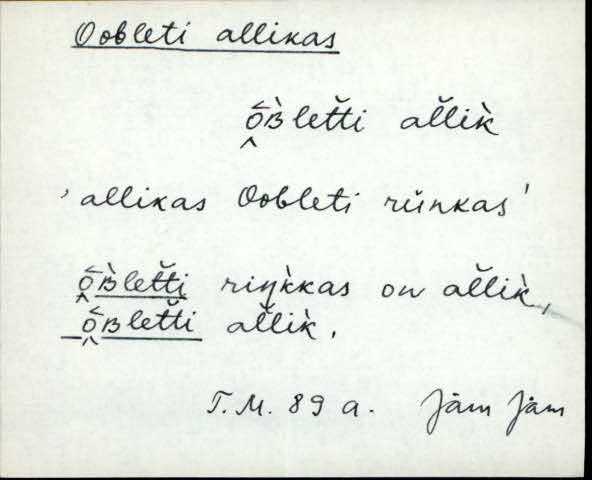 Oobleti allikas
ō̭ʙ̀letˇti alˇlìk
'allikas Oobleti rünkas'
ō̭ʙ̀letˇti riŋ̀kkas on alˇlìk,
ō̭ʙletˇti alˇlìk.
T.M. 89 a. Jäm Jäm